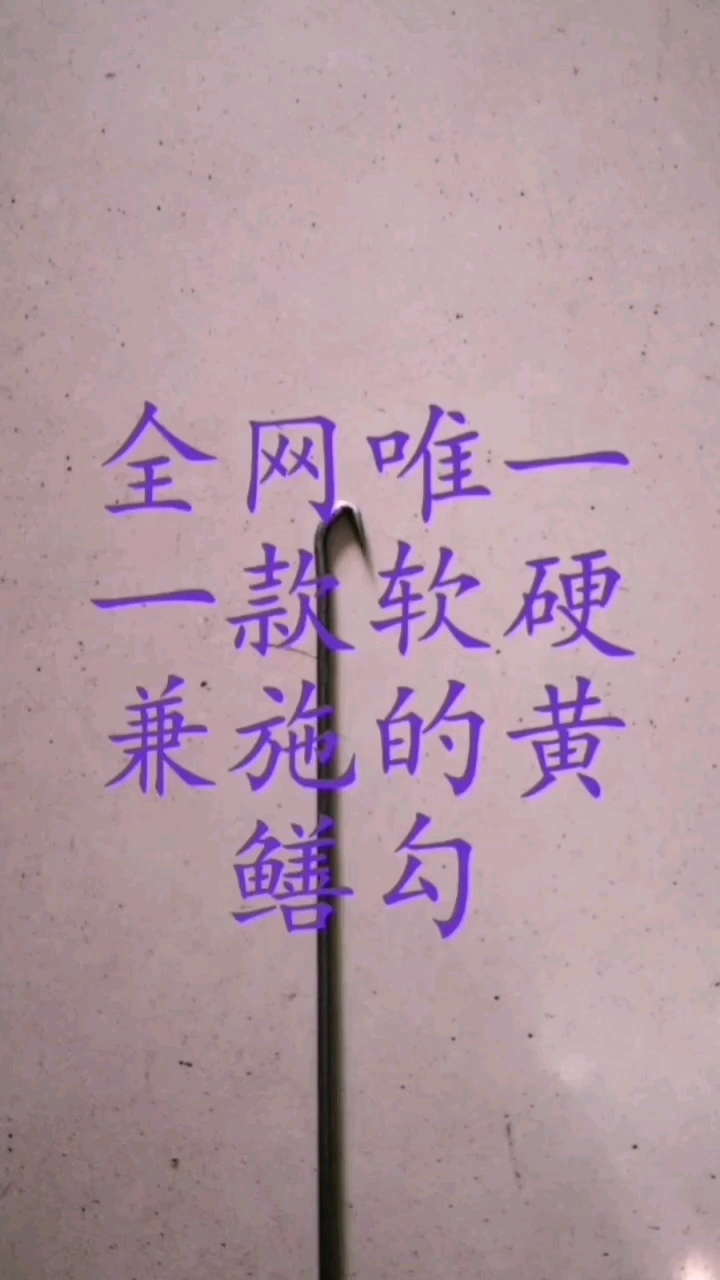 全网唯一
一款软硬
兼施的黄
鳝勾